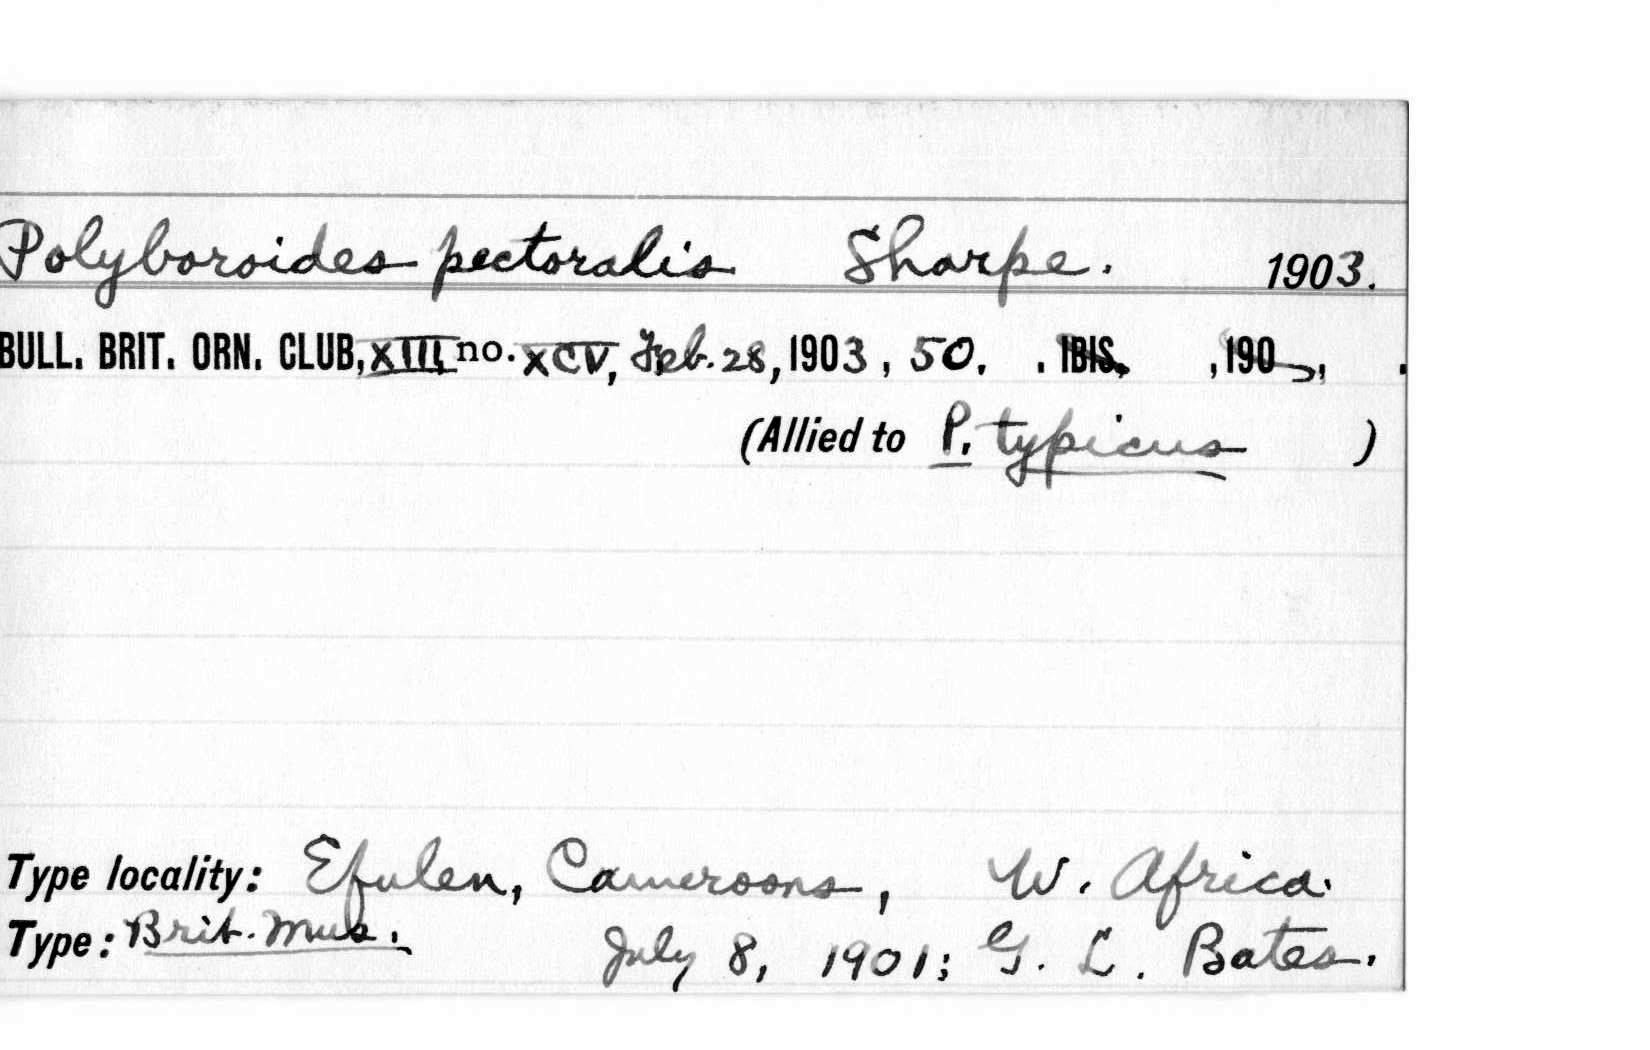 Polyboroides pectoralis Sharpe. 1903.
BULL. BRIT. ORN. CLUB, XIII, no. XCV, Feb. 28, 1903, 50. . IBIS, ,190 , .
(Allied to P. typicus )
Type locality: Efulen, Cameroons, W. Africa.
Type: Brit. Mus. July 8, 1901; G. L. Bates.